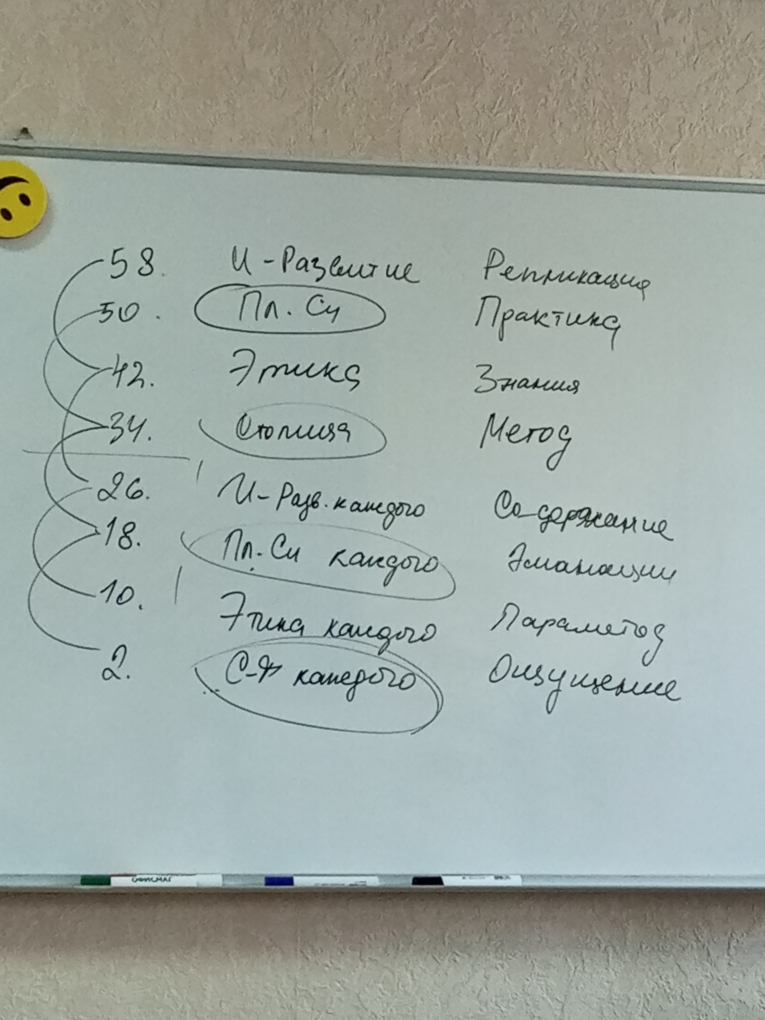 58. И-Развитие Репликация
50. Пл. Си Практика
42. Этика Знания
34. Столица Метод
26. И-Разв. каждого Содержание
18. Пл. Си каждого Эманации
10. Этика каждого Параметод
2. С-Ф каждого Ощущение
ОФИСМАГ